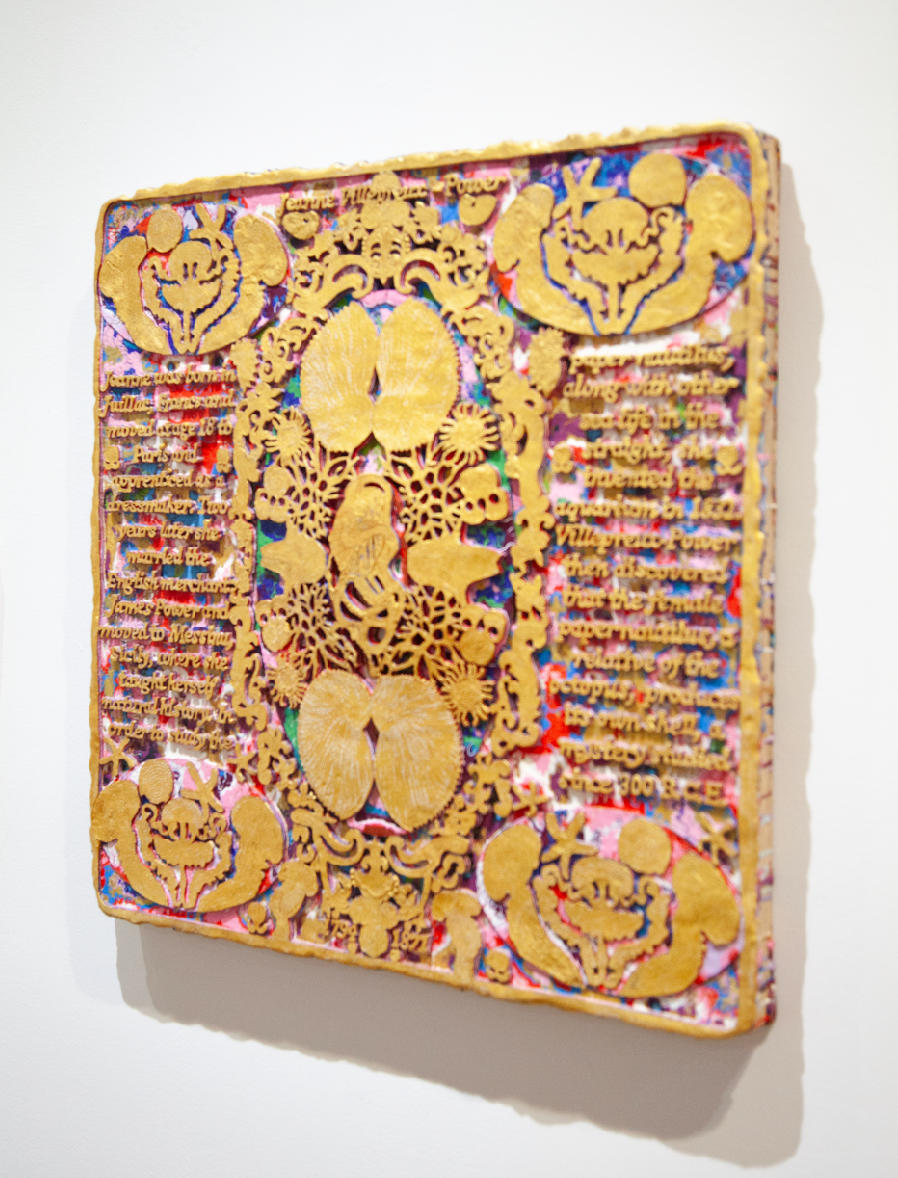 Jeanne Villepreux-Power
Jeanne was born in
Juillac, France and
moved at age 18 to
Paris and
apprenticed as a
dressmaker. Two
years later she
married the
English merchant,
James Power and
moved to Messina,
Sicily, where she
taught herself
natural history. In
order to study the
paper nautilus,
along with other
sea life in the
straight, she
invented the
aquarium in 1832.
Villepreux-Power
then discovered
that the female
paper nautilus, a
relative of the
octopus, produces
its own shell, a
mystery
since 300 B.C.E.
1794 1871